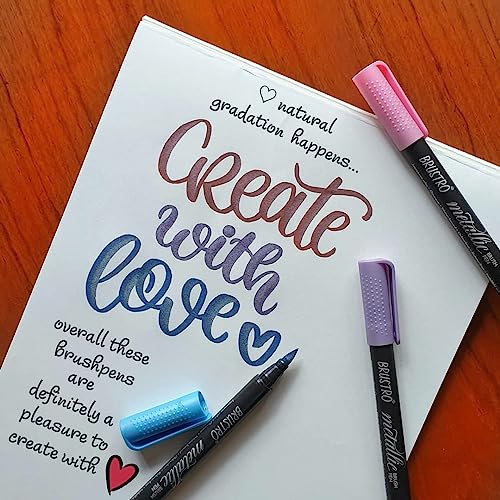 natural
gradation happens...
Create
with
love
overall these
brushpens
are
definitely a
pleasure to
create with
BRUSTRO
metallic
BRUSH
PEN
BRUSTRO
metallic
BRUSH
PEN
BRUSTRO
metallic
BRUSH
PEN